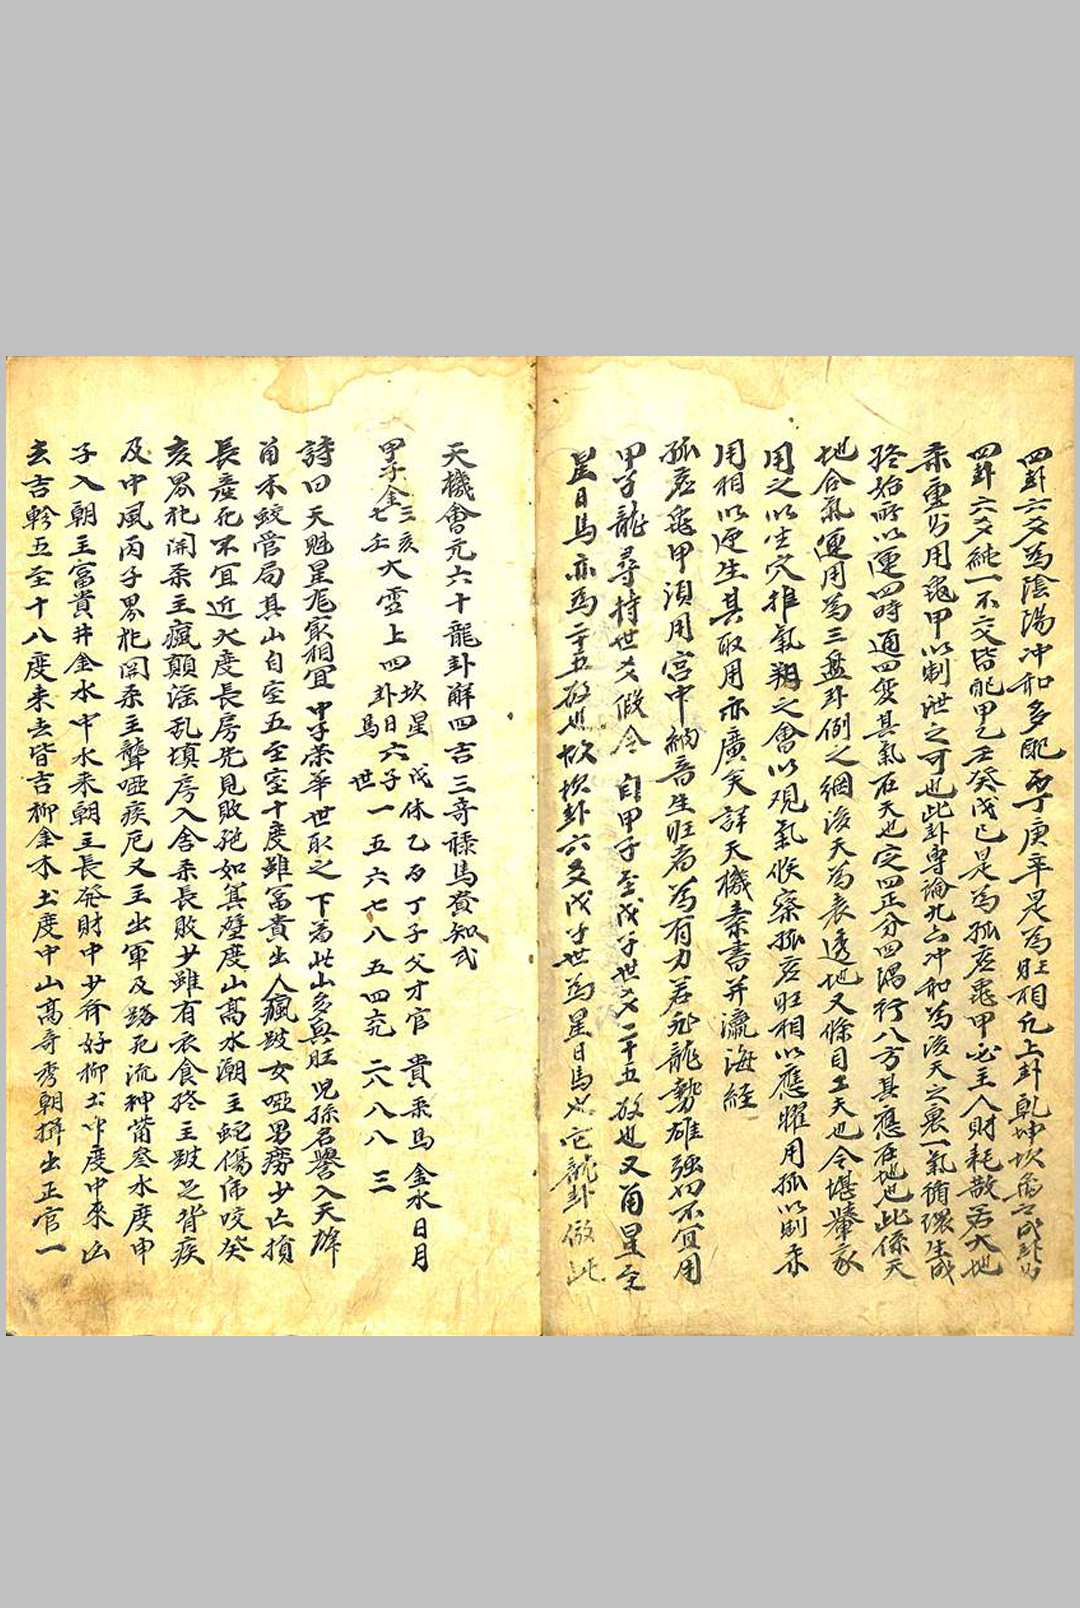 四卦六爻為陰陽冲和多配丙丁庚辛是為旺相凡上卦乾坤坎离六
四卦六爻純一不交皆配甲乙壬癸戊已是為孤虚龜甲必主入財耗散若大地
乘重乃用龜甲以制泄之可也此卦専論九六冲和為後天之裏一氣循環生成
終始所以運四時通四変其氣在天也定四正分四隅行八方其應在地也此係天
地合氣運用為三盤卦例之綱後天為表透地又條目工夫也今堪輿家
用之以坐穴推氣朔之會以观氣候察孤虚旺相以應曜用孤以制乘
用相以迎生其取用亦廣矣詳天機素書并瀛海經
孤虚龜甲須用宫中納音生旺者為有力若来龍勢雄強切不宜用
甲子龍尋持世爻假令自甲子至戊子世爻二十五故也又角星至
星日馬亦為二十五故也故坎卦六爻戊子世為星日馬也它龍卦倣此
天機會元六十龍卦解四吉三奇祿馬貴知式
甲子金三亥七壬大雪上四坎卦星日馬六戊子世休一乙五丙六丁七子八父五才四官兊貴二八乘八馬金水日月三
詩曰天魁星尨家相冝甲子荣華世取之下若此山多興旺児孫名譽入天墀
角木蛟管局其山自室五至室十度雖富貴出人瘋跛女啞男癆少亡損
長産死不宜近犬度長房先見敗絶如箕壁度山高水潮主蛇傷虎咬癸
亥界犯関柔主瘋顛滛乱填房入舍柔長敗少雖有衣食終主跛足背疾
及中風丙子界犯関柔主聾啞疾厄又主出軍及路死流神當参水度申
子入朝主富貴井金水中水来朝主長発財中少斉好柳土中度中來凶
去吉軫五至十八度来去皆吉柳金木土度中山高奇秀朝拱出正官一